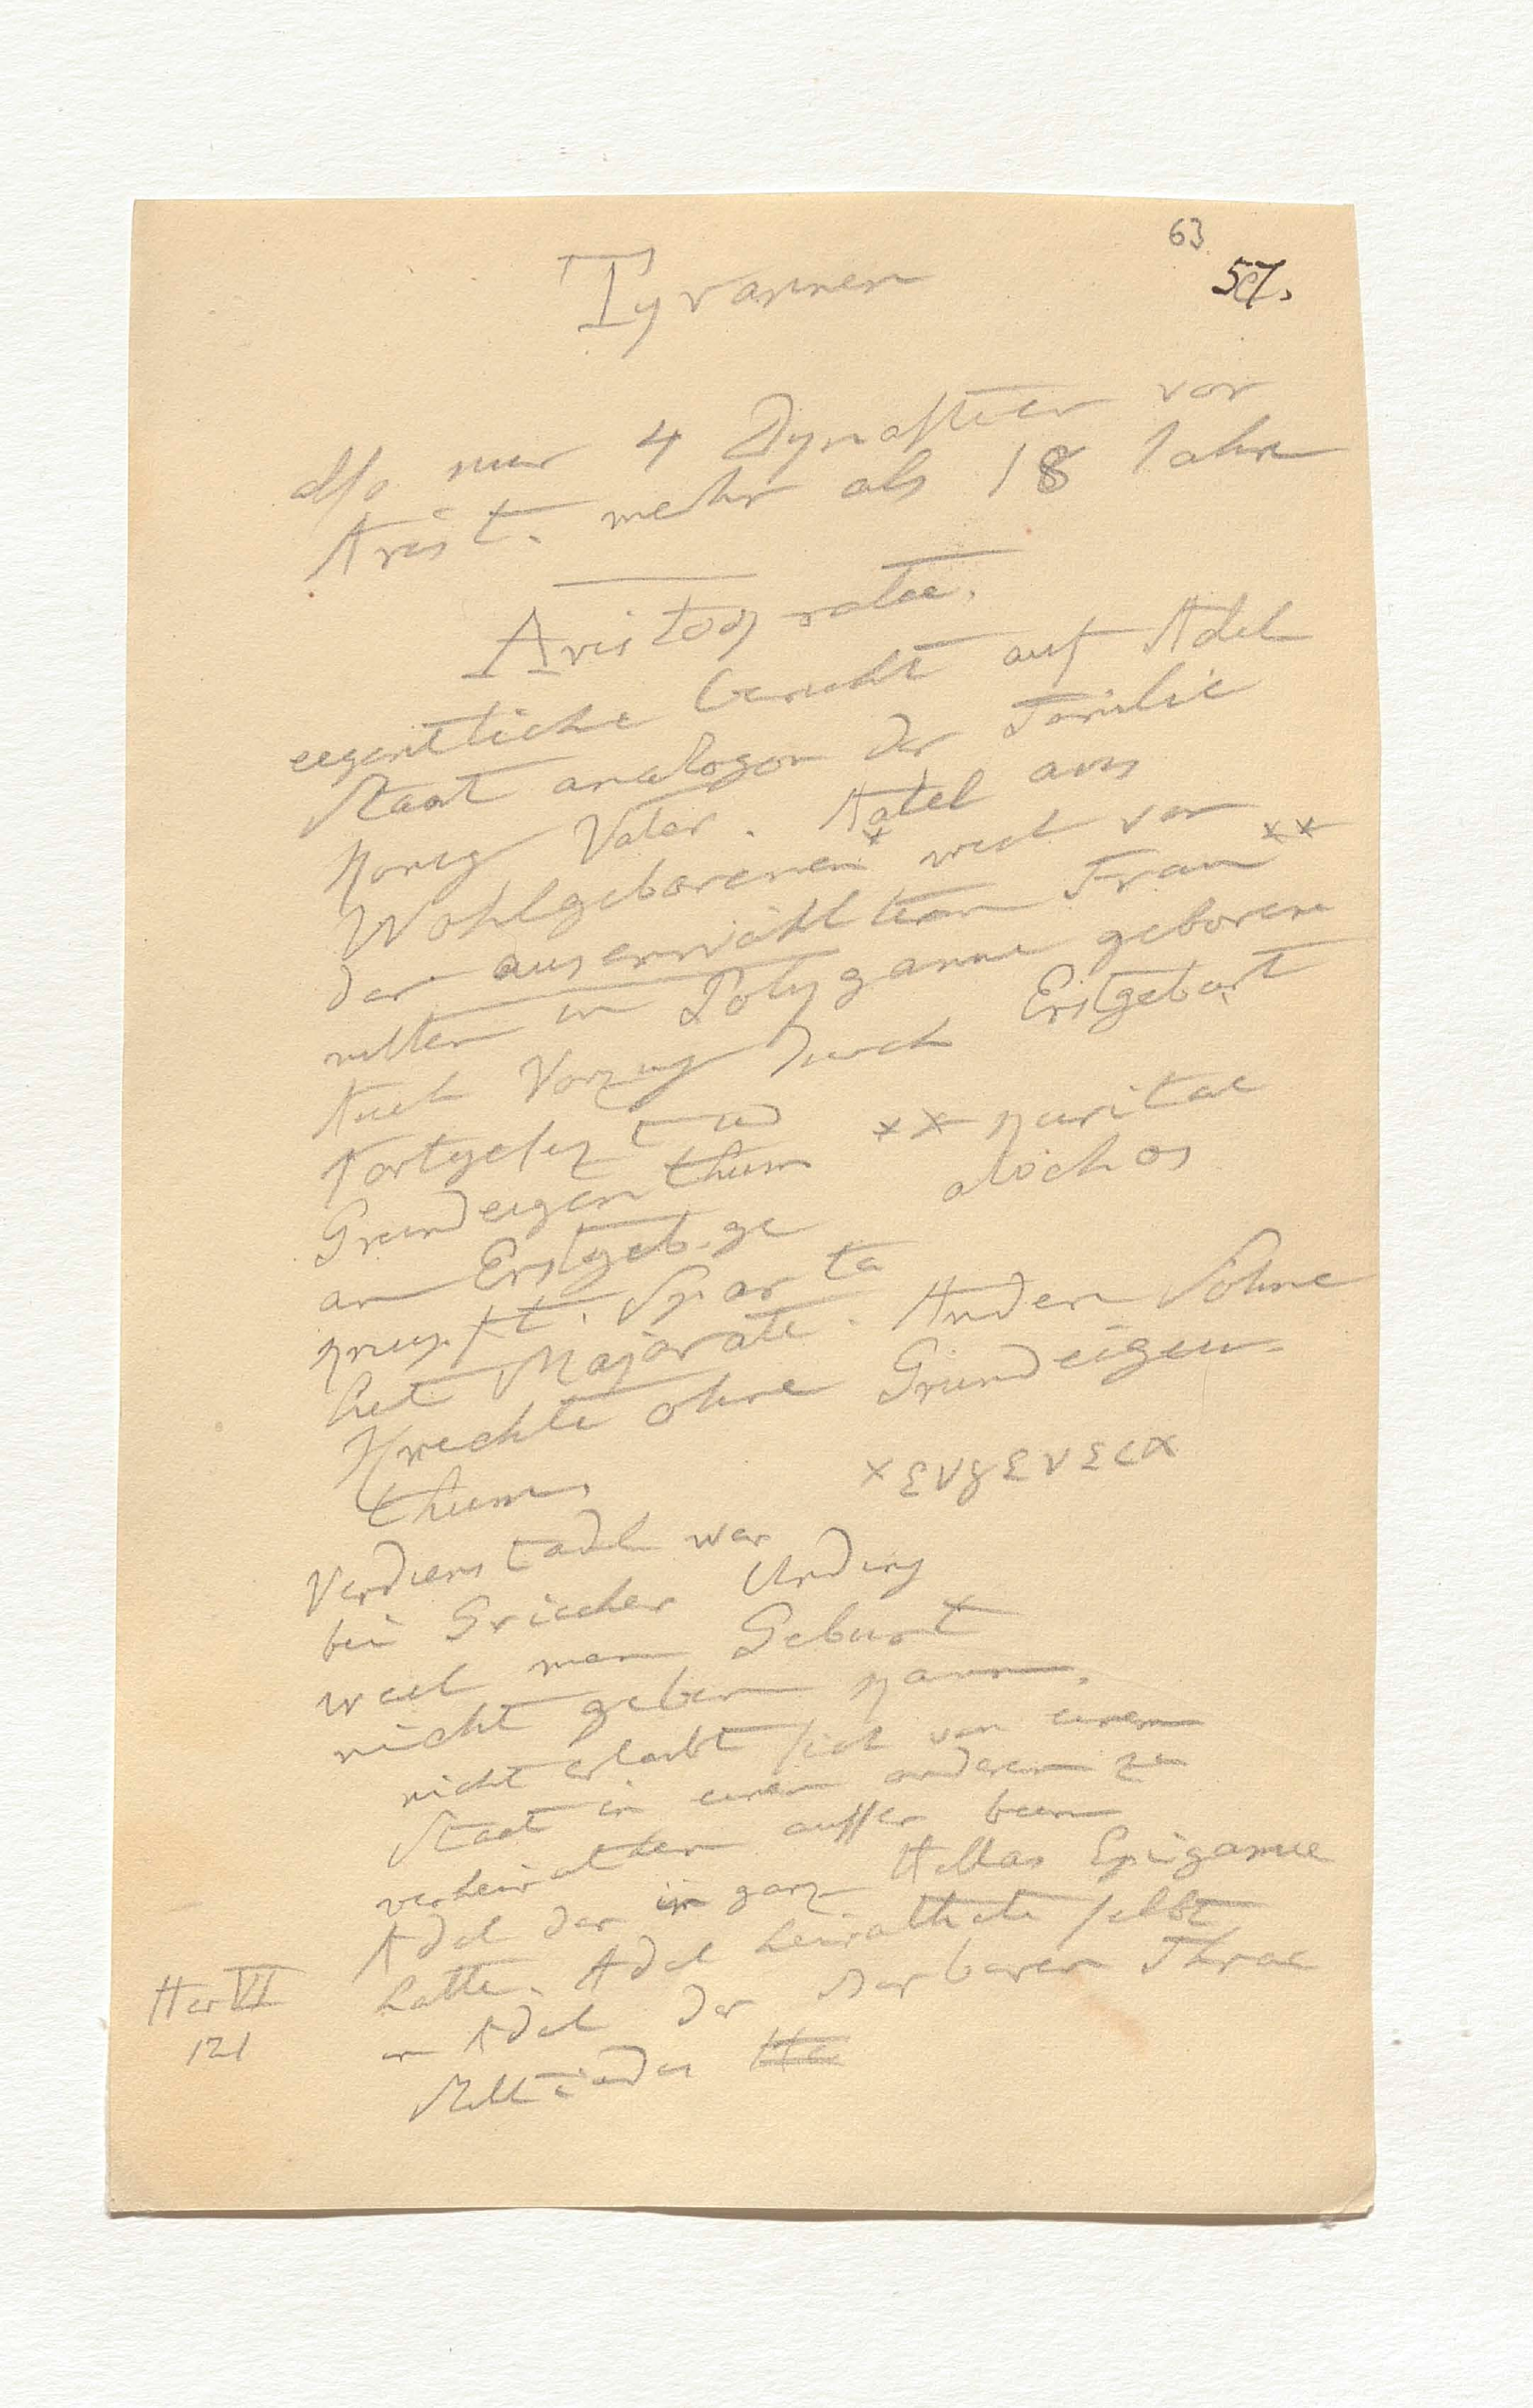 63
57.
Tyrannen
also nur 4 Dynastien vor
Arist. mehr als 18 Jahre
Aristoqratie.
eigentliche beruht auf Adel
Staat analogon der Familie
König Vater. Adel aus
Wohlgeborenen* weil von
der auserwählten Frau**
mitten in Polygamie geboren
Auch Vorzug durch Erstgeburt
Fortgesezt und
Grundeigenthum
** kuritae
alochos
an Erstgeb. ge
knüpft. Sparta
hat Majorate. Andern Söhne
Knechte ohne Grundeigen-
thum.
* ευγενεια
Verdienstadel war
bei Griechen Unding
weil man Geburt
nicht geben kann.
nicht erlaubt sich von einem
Staat in einen anderen zu
verheirathen ausser beim
Adel der in ganz Hellas Epigamie
hatte. Adel heirathete selbst
an Adel der Barbaren Thrac
Her VI
121
Miltiades